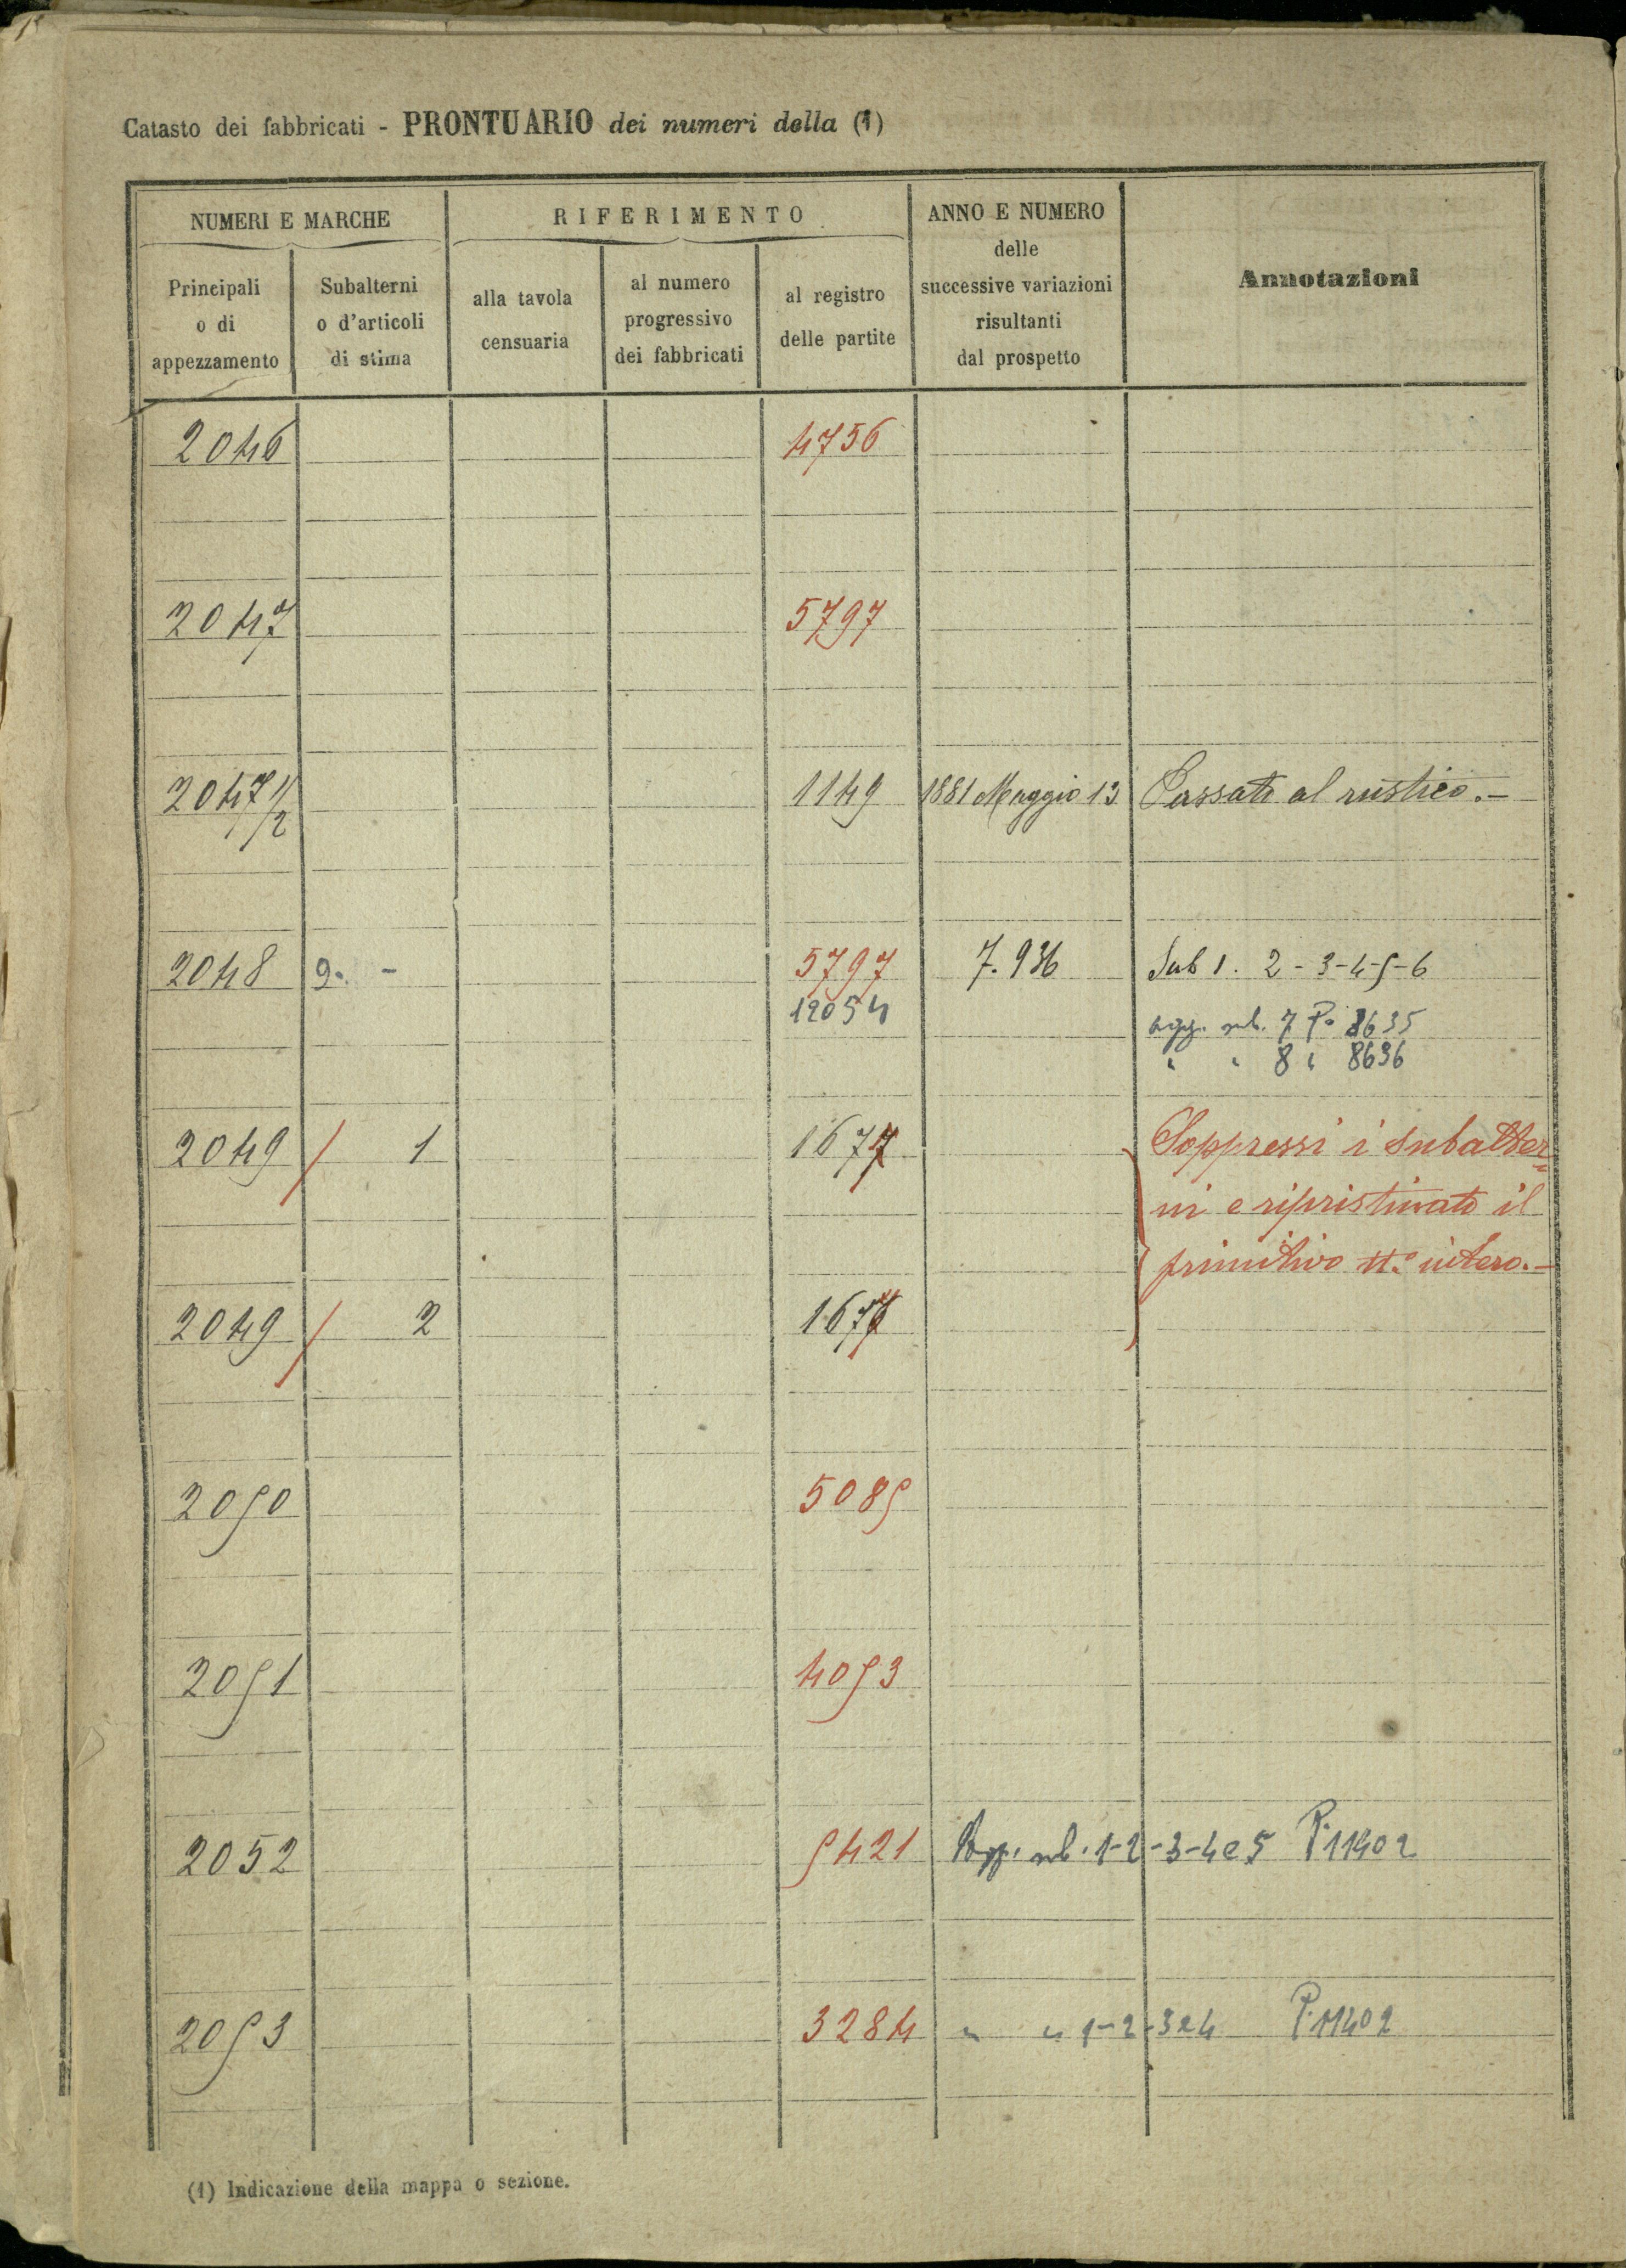 Catasto dei fabbricati - PRONTUARIO dei numeri della (1)
NUMERI E MARCHE
RIFERIMENTO
ANNO E NUMERO
delle
successive variazioni
risultanti
dal prospetto
Annotazioni
Principali
o di
appezzamento
Subalterni
o d'articoli
di stima
alla tavola
censuaria
al numero
progressivo
dei fabbricati
al registro
delle partite
2046 4756
2047 5797
2047 1/2 1149 1881 Maggio 13 Passato al rustico.-
2048 9. - 5797 7.936 Sub 1. 2-3-4-5-6
12054 agg. sub. 7 P. 8635
" " 8 " 8636
2049 / 1 1677 Soppressi i subalter=
ni e ripristinato il
primitivo N.° intero.-
2049 / 2
2050 5085
2051 4053
2052 5421 Agg. sub. 1-2-3-4 e 5 P. 11402
2053 3284 " " 1-2-3 e 4 P. 11402
(1) Indicazione della mappa o sezione.